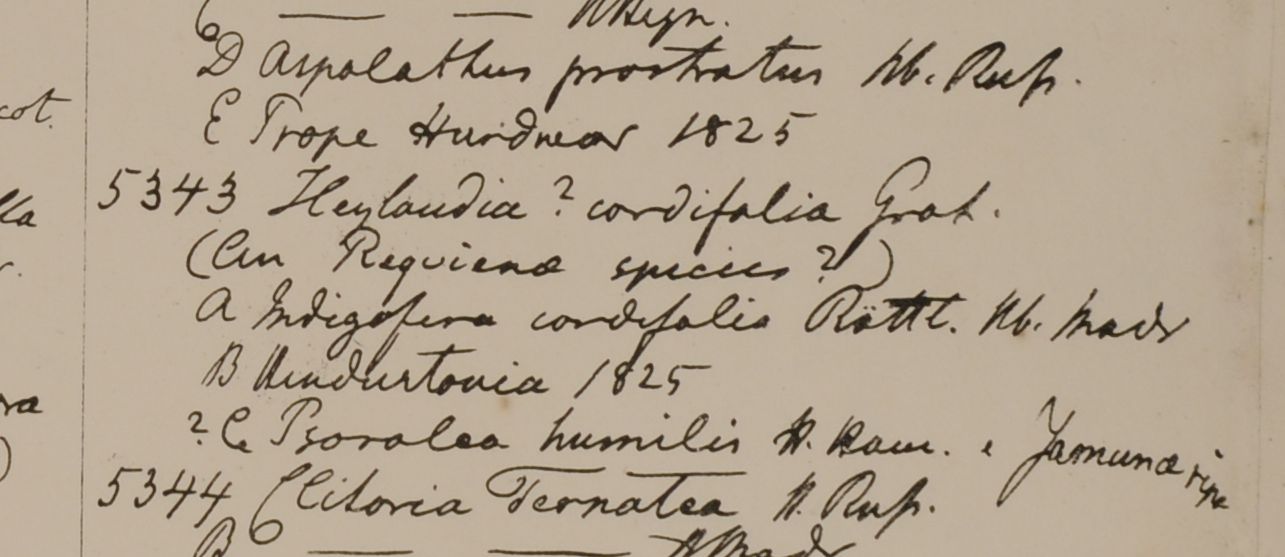 C — — H Heyn.
D Aspalathus prostratus Hb. Rup.
cot.
E Prope Hurdwar 1825
5343 Heylandia ? cordifolia Grah.
lla
(An Requienæ species ?)
A Indigofera cordifolia Rottl. Hb. Madr
B Hindustania 1825
ra
? C Psoralea humilis H. Ham. e Jamunæ ripa
5344 Clitoria Ternatea H. Rup.
B — — H Madr